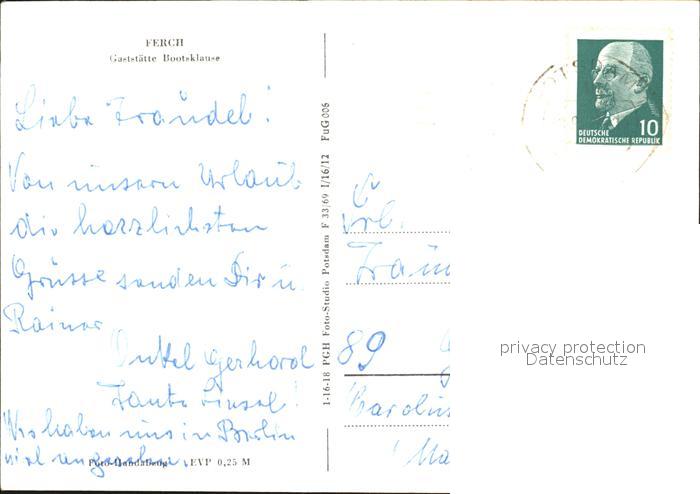 FERCH
Gaststätte Bootsklause
Liebe Traudel!
Von unserm Urlaub
die herzlichsten
Grüsse senden Dir u.
Rainer
Onkel Gerhard
Tante Liesel!
Wir haben uns in Berlin
viel angesehen.
Foto-Handabzug EVP 0,25 M
1-16-18 PGH Foto-Studio Potsdam F 33/69 I/16/12 FuG 006
DEUTSCHE
DEMOKRATISCHE REPUBLIK
10
Frl.
89
privacy protection
Datenschutz